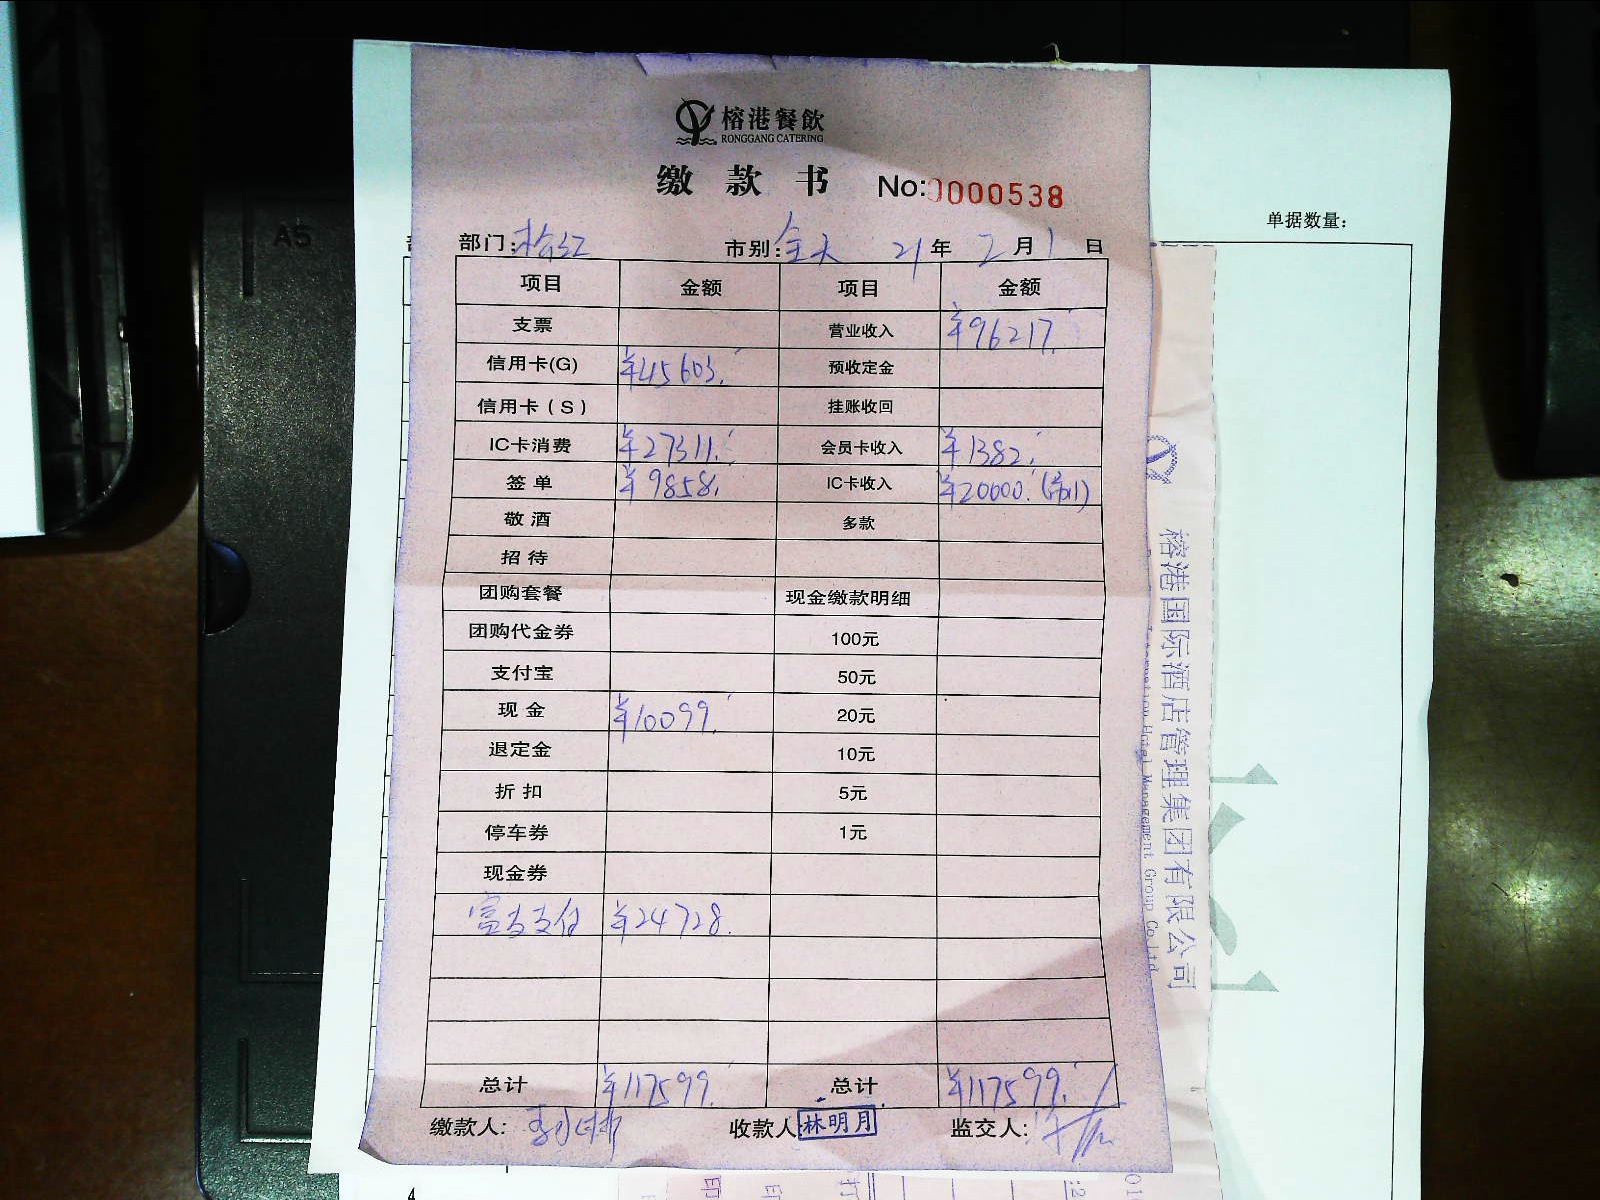 榕港餐飲
RONGGANG CATERING
缴款书 No:0000538
单据数量:
部门: 市别:全天 21年2月1日
项目 金额 项目 金额
支票 营业收入 ¥96217.
信用卡(G) ¥45603. 预收定金
信用卡(S) 挂账收回
IC卡消费 ¥27311. 会员卡收入 ¥1382.
签单 ¥9858. IC卡收入 ¥20000.
敬酒 多款
招待
团购套餐 现金缴款明细
团购代金券 100元
支付宝 50元
现金 ¥10099. 20元
退定金 10元
折扣 5元
停车券 1元
现金券
富友支付 ¥24728.
总计 ¥117599. 总计 ¥117599.
缴款人: 收款人 林明月 监交人:
榕港国际酒店管理集团有限公司
Hotel Management Group Co.Ltd
A5
4